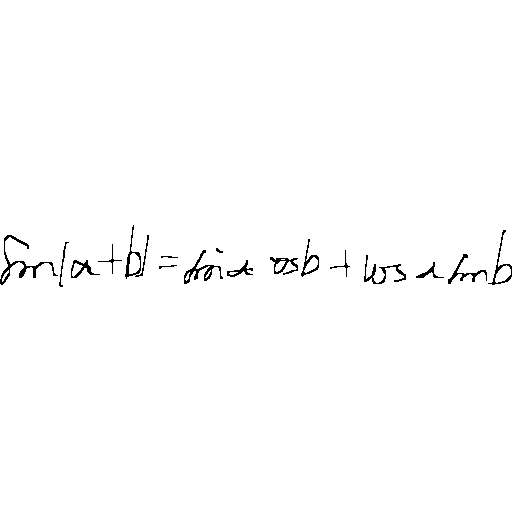 sin(a+b)=sin a cos b + cos a sin b